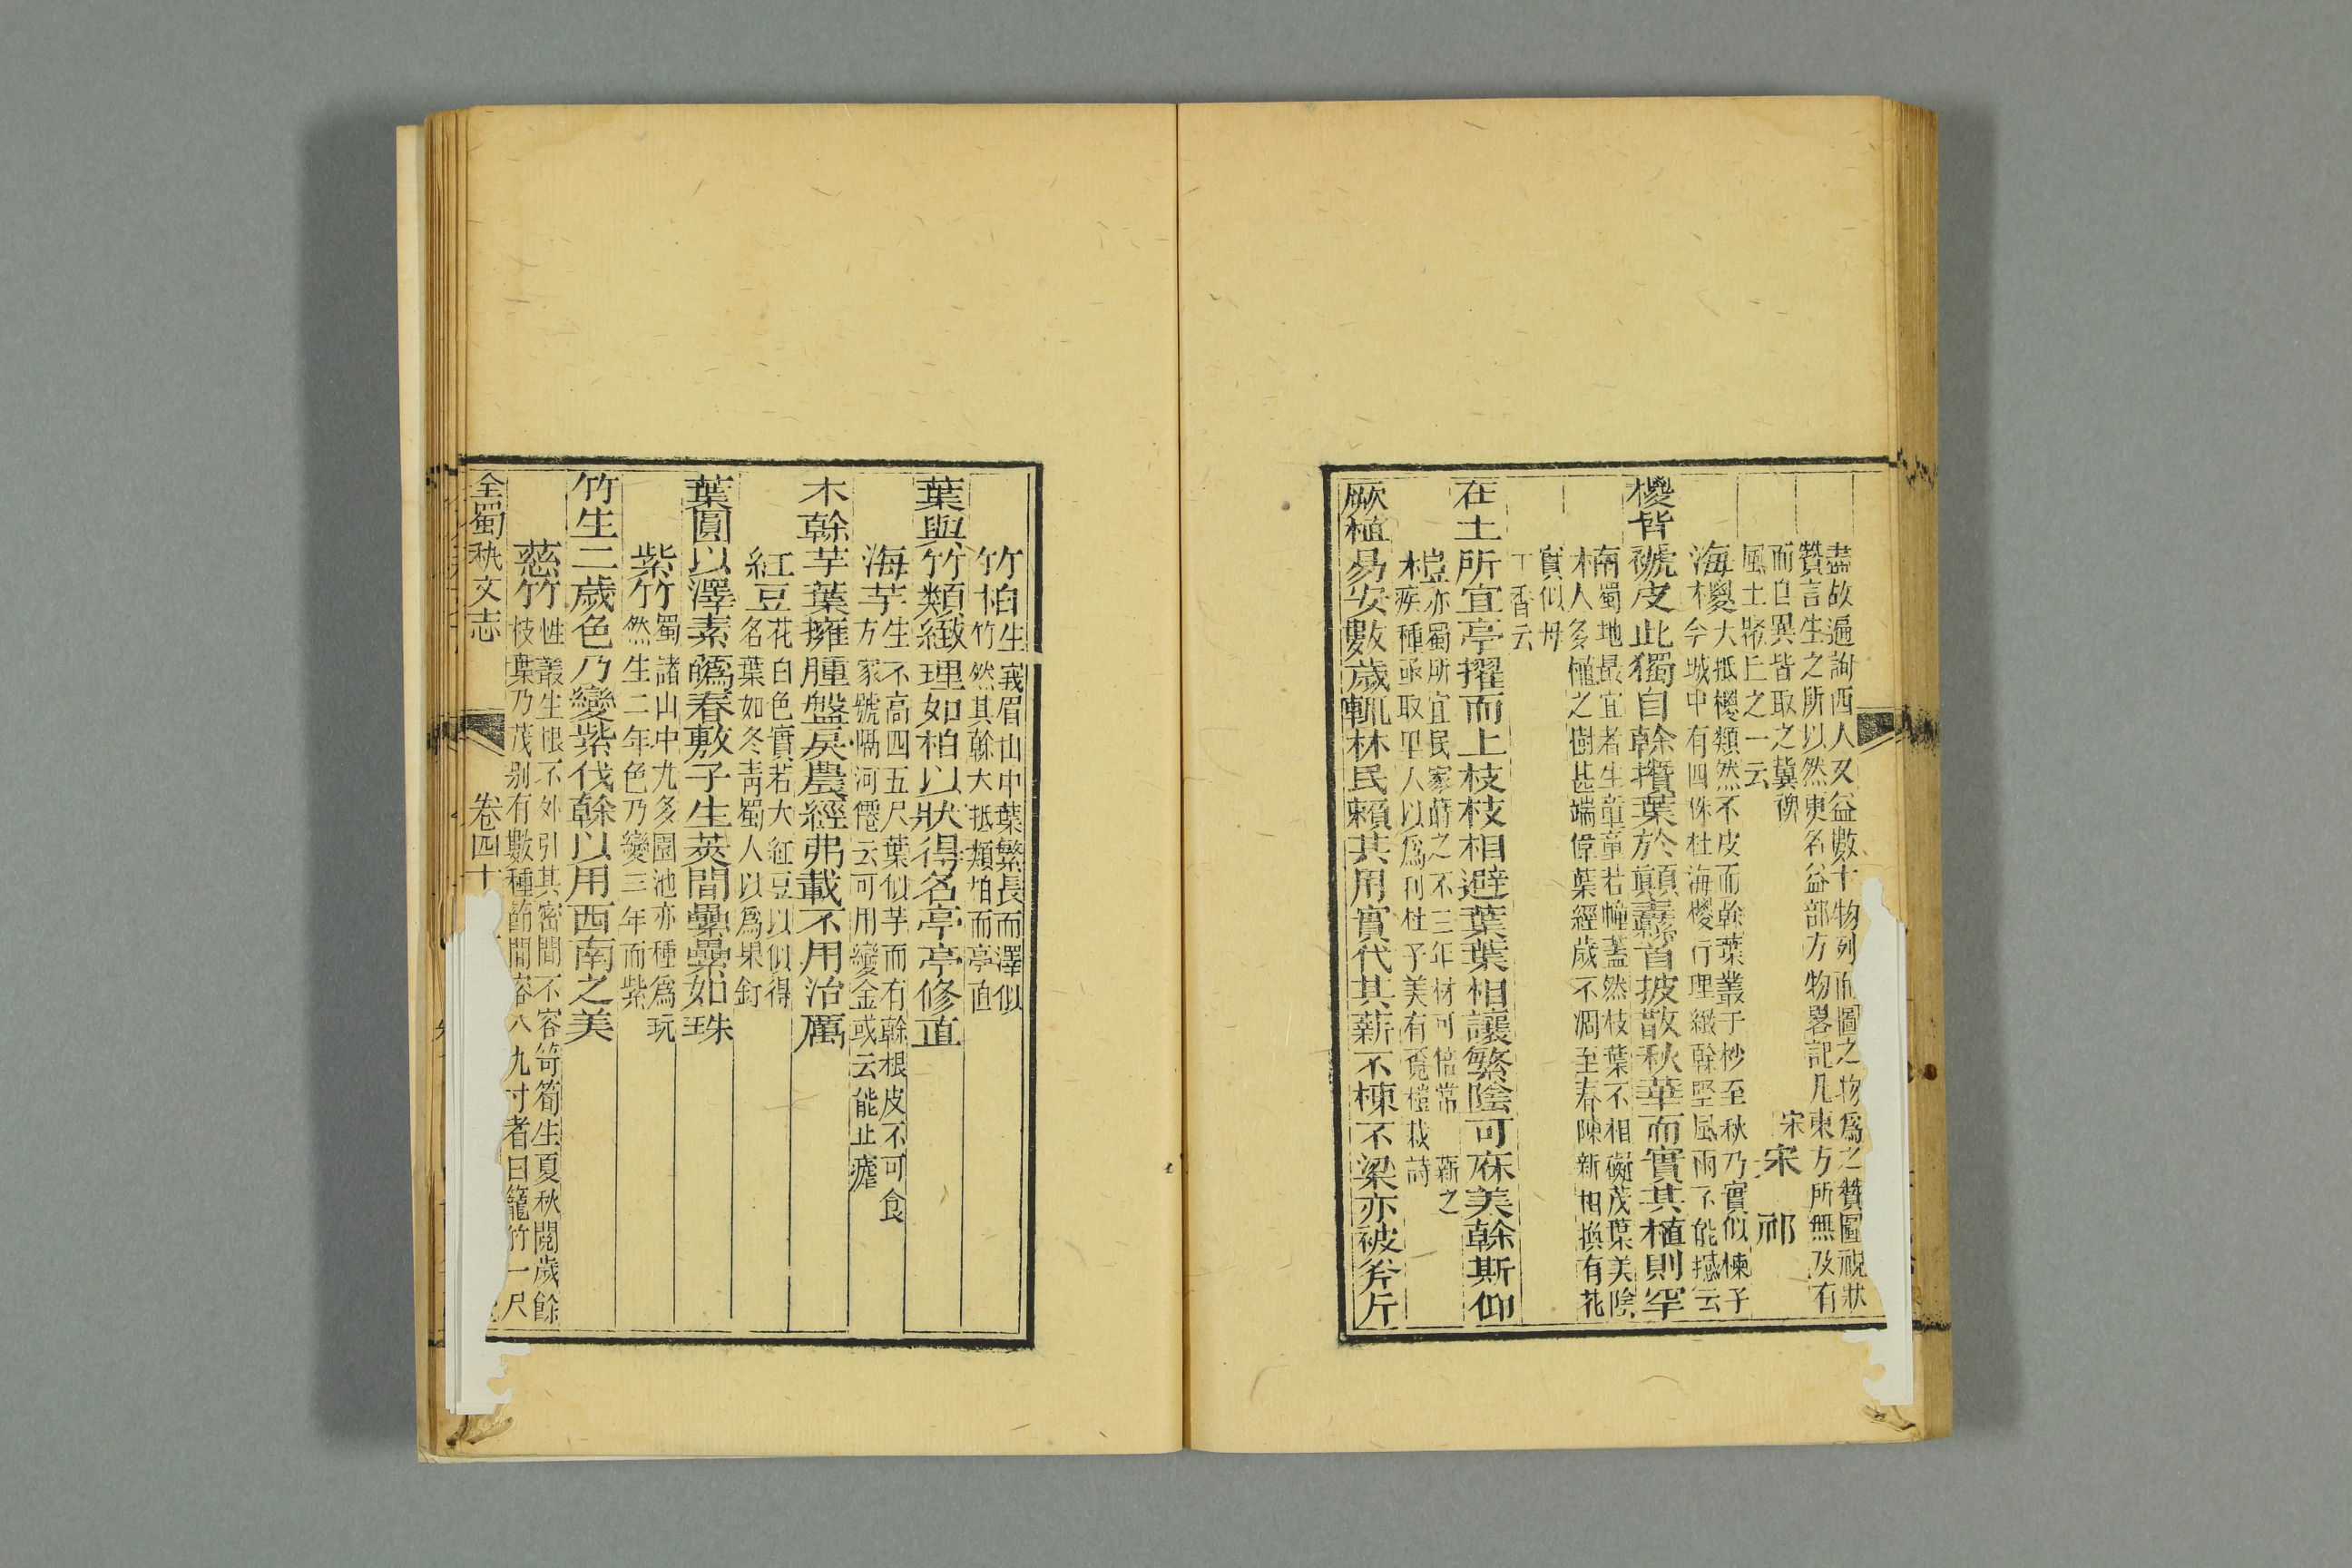 盡故遍詢西人又益數十物列而圖之物爲之贊圖視狀
贊言生之所以然更名益部方物畧記凡東方所無及有
而自異皆取之冀裨
風土聚丘之一云
宋宋祁
海櫻大抵櫻類然不皮而幹葉叢于杪至秋乃實似楝子
今城中有四株杜海櫻行理緻幹堅風雨不能撼云
櫻皆褫皮此獨自幹攢葉於顛纛首披散秋華而實其植則罕
楠蜀地最宜者生童童若幢蓋然枝葉不相礙茂葉美陰
人多植之樹甚端偉葉經歲不凋至春陳新相換有花
實似母
丁香云
在土所宜亭擢而上枝枝相避葉葉相讓繁陰可庥美幹斯仰
榿亦蜀所宜民家蒔之不三年材可倍常薪之
疾種亟取里人以爲利杜子美有覓榿栽詩
厥植易安數歲輒林民賴其用實代其薪不楝不梁亦被斧斤
竹柏生峩眉山中葉繁長而澤似
竹然其幹大抵類柏而亭直
葉與竹類緻理如柏以狀得名亭亭修直
海芋生不高四五尺葉似芋而有幹根皮不可食
方家號隔河僊云可用變金或云能止瘧
木幹芋葉擁腫盤戾農經弗載不用治厲
紅豆花白色實若大紅豆以似得
名葉如冬青蜀人以爲果飣
葉圓以澤素蘤春敷子生莢間纍纍如珠
紫竹蜀諸山中尤多園池亦種爲玩
然生二年色乃變三年而紫
竹生二歲色乃變紫伐幹以用西南之美
慈竹性叢生根不外引其密間不容笴筍生夏秋閱歲餘
枝葉乃茂别有數種節間容八九寸者曰籠竹一尺
全蜀秇文志 卷四十